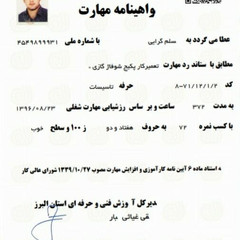 واهینامه مهارت
عطا می گردد به سلم گرایی با شماره ملی ۴۵۴۹۸۹۹۹۳۱
مطابق با ستاند رد مهارت تعمیرکار پکیج شوفاژ گازی .
کد ۸-۷۱/۱۲/۱/۲ حرفه تاسیسات
به مدت ۳۷۲ ساعت و بر ساس رزشیابی مهارت شغلی ۱۳۹۶/۰۸/۲۳
با کسب نمره ۷۲ به حروف هفتاد و دو ز ۱۰۰ و سطح خوب
ه استناد ماده ۶ آیین نامه کارآموزی و افزایش مهارت مصوب ۱۳۴۹/۱۰/۲۷ شورای عالی کار
دیر کل آ وزش فنی و حرفه ای استان البرز
قی غیاثی بار